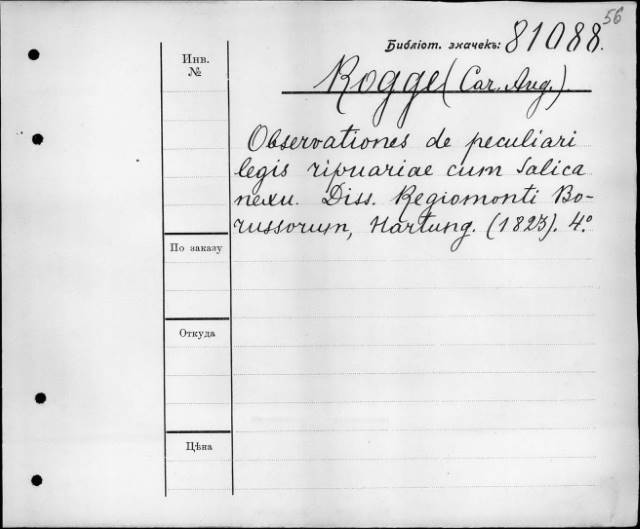 56
Библіот. значекъ: 81088.
Инв.
№
Rogge (Car. Aug.).
Observationes de peculiari
legis ripuariae cum Salica
nexu. Diss. Regiomonti Bo-
russorum, Hartung. (1823). 4.°
По заказу
Откуда
Цѣна